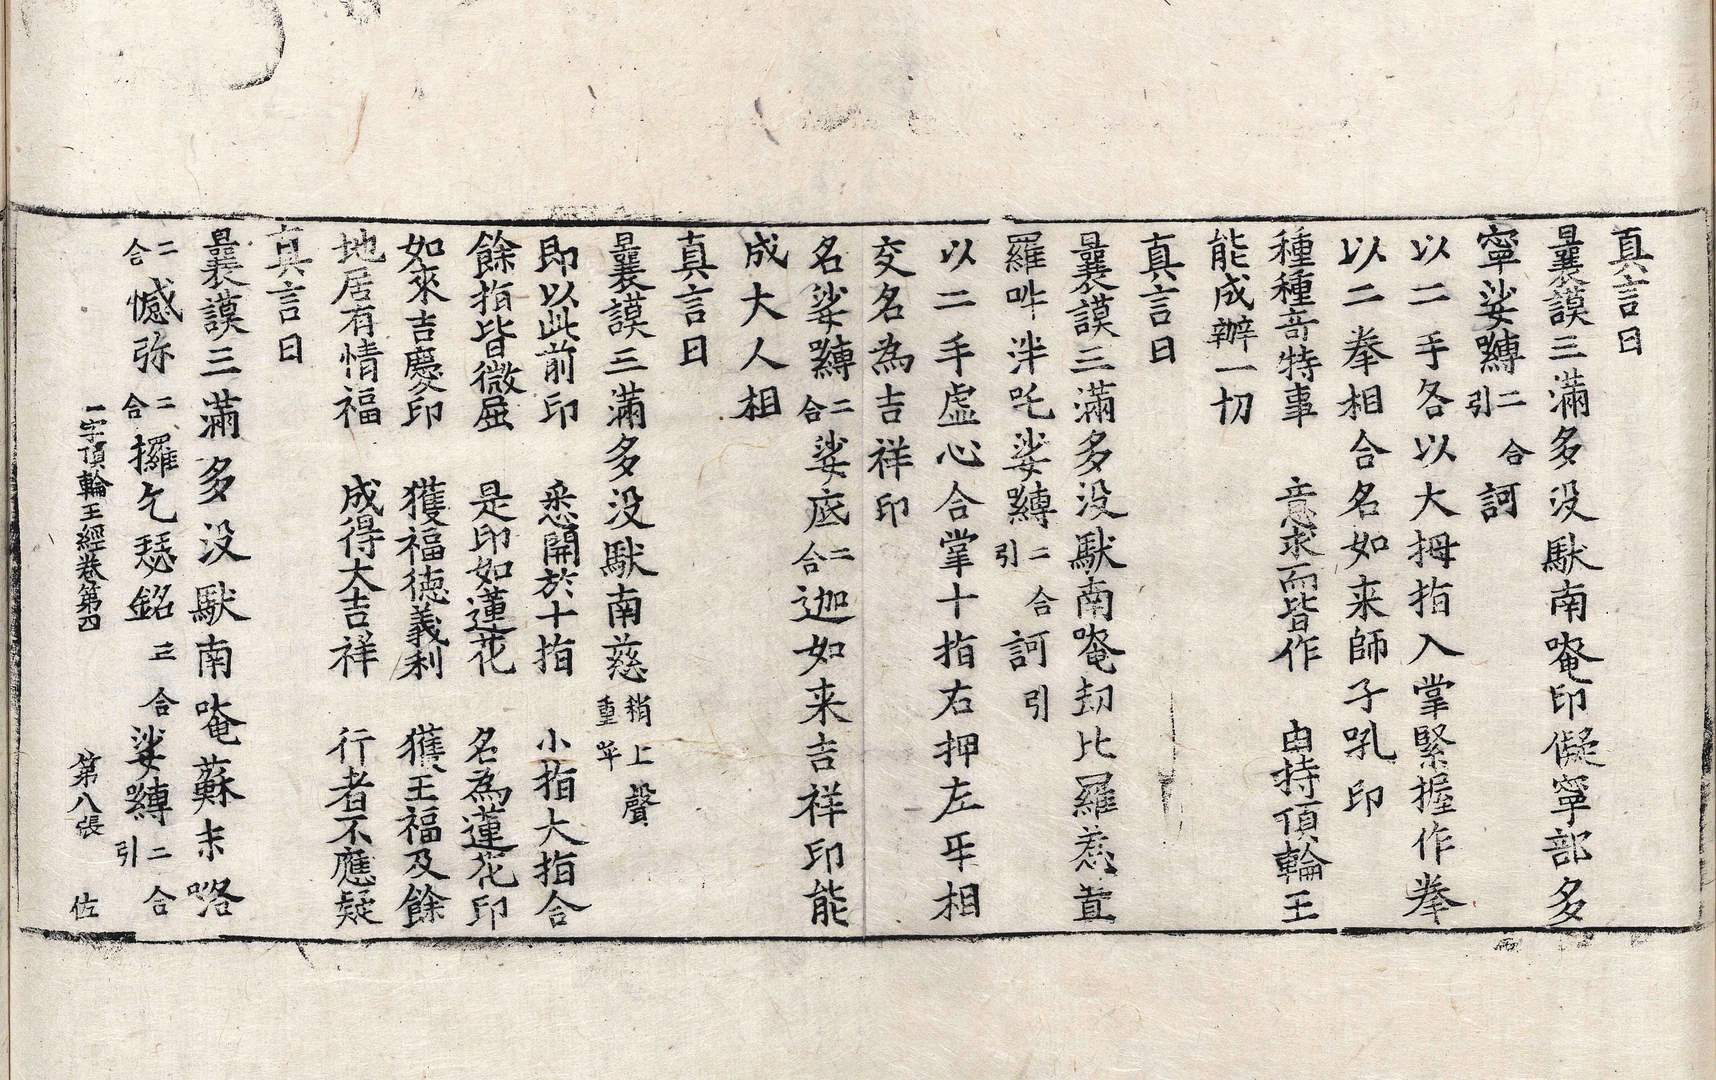 真言曰
曩謨三滿多没馱南唵印儗寧部多
寧娑嚩二合引訶
以二手各以大拇指入掌緊握作拳
以二拳相合名如来師子吼印
種種竒特事　意求而皆作　由持頂輪王
能成辦一切
真言曰
曩謨三滿多没馱南唵刼比羅惹置
羅吽泮吒娑嚩二合引訶引
以二手虚心合掌十指右押左平相
交名為吉祥印
名娑嚩二合娑底二合迦如来吉祥印能
成大人相
真言曰
曩謨三滿多没馱南慈稍上聲重呼
即以此前印　悉開於十指　小指大指合
餘指皆微屈　是印如蓮花　名為蓮花印
如來吉慶印　獲福德義利　獲王福及餘
地居有情福　成得大吉祥　行者不應疑
真言曰
曩謨三滿多没馱南唵蘇末咯
二合憾弥二合攞乞瑟銘三合娑嚩二合引
一字頂輪王經卷第四　第八張　佐